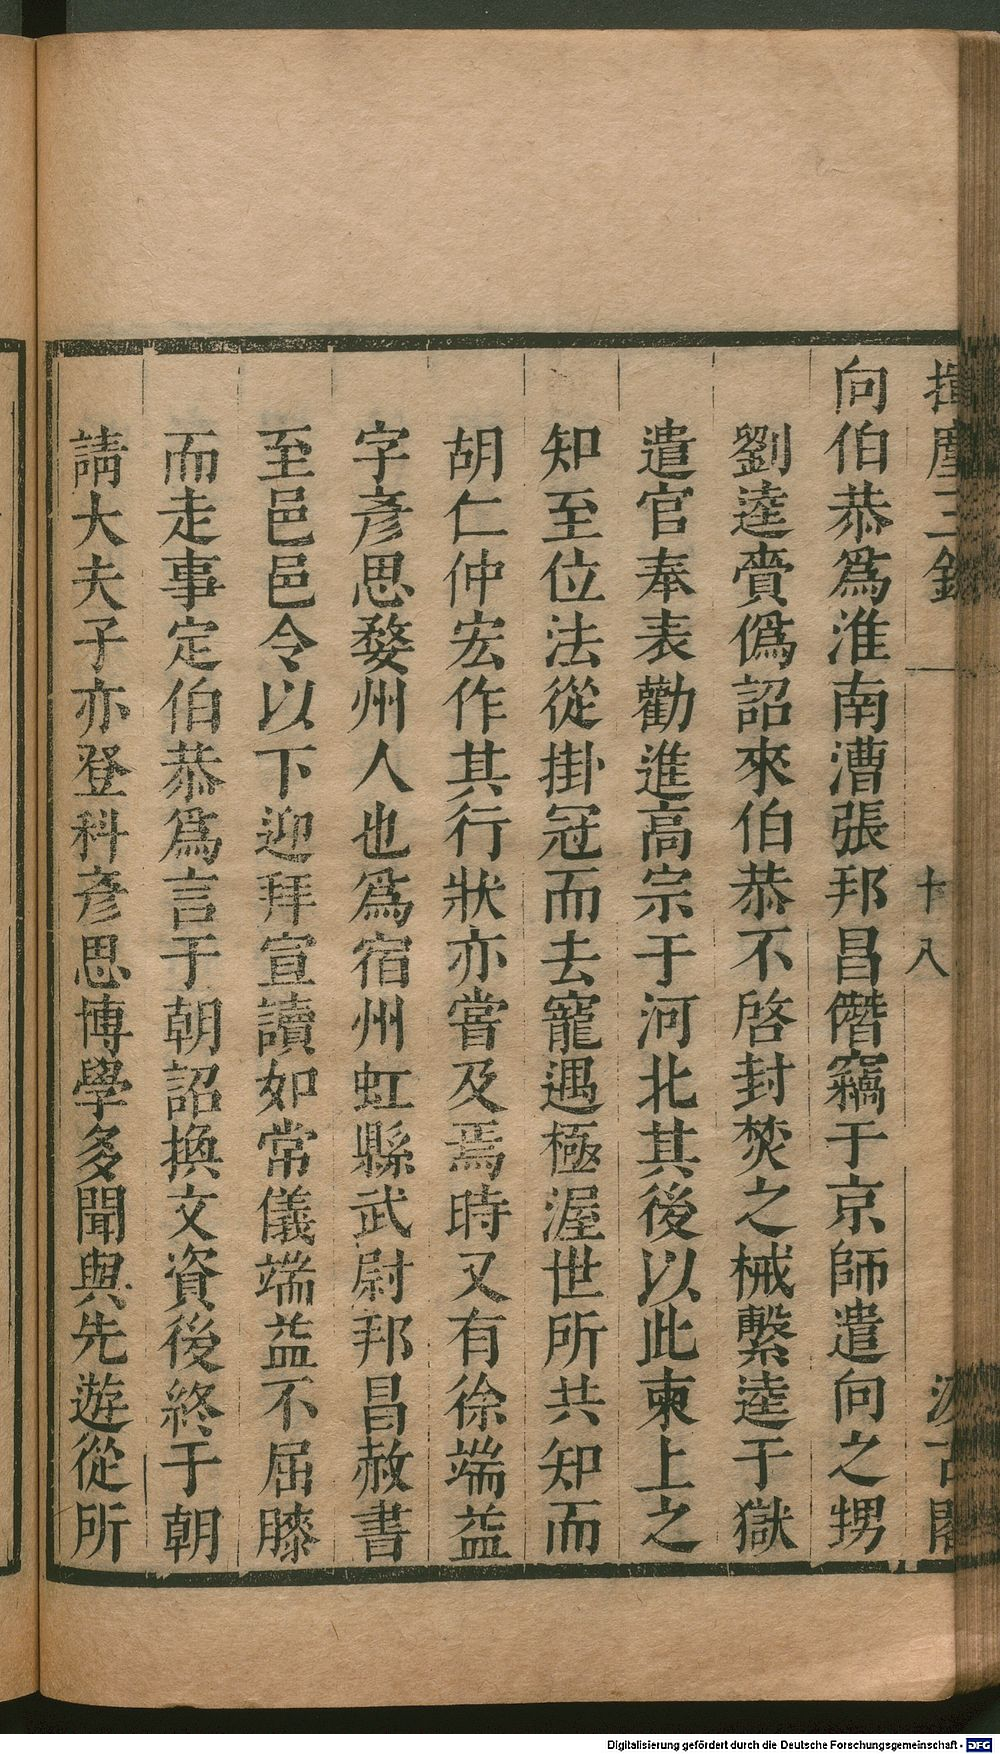 揮麈三錄
十八
汲古閣
向伯恭爲淮南漕張邦昌僭竊于京師遣向之甥
劉逵賫僞詔來伯恭不啓封焚之械繫逵于獄
遣官奉表勸進高宗于河北其後以此柬上之
知至位法從掛冠而去寵遇極渥世所共知而
胡仁仲宏作其行狀亦嘗及焉時又有徐端益
字彥思婺州人也爲宿州虹縣武尉邦昌赦書
至邑邑令以下迎拜宣讀如常儀端益不屈膝
而走事定伯恭爲言于朝詔換文資後終于朝
請大夫子亦登科彥思博學多聞與先遊從所
Digitalisierung gefördert durch die Deutsche Forschungsgemeinschaft - DFG